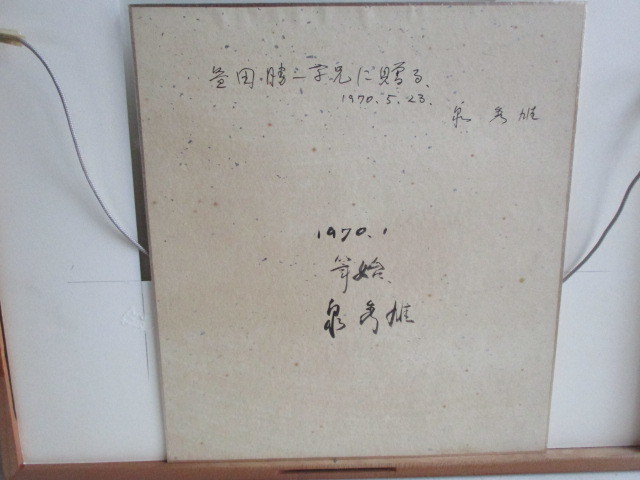 益田勝三学兄に贈る
1970.5.23.
泉 秀雄
1970.1
泉 秀雄